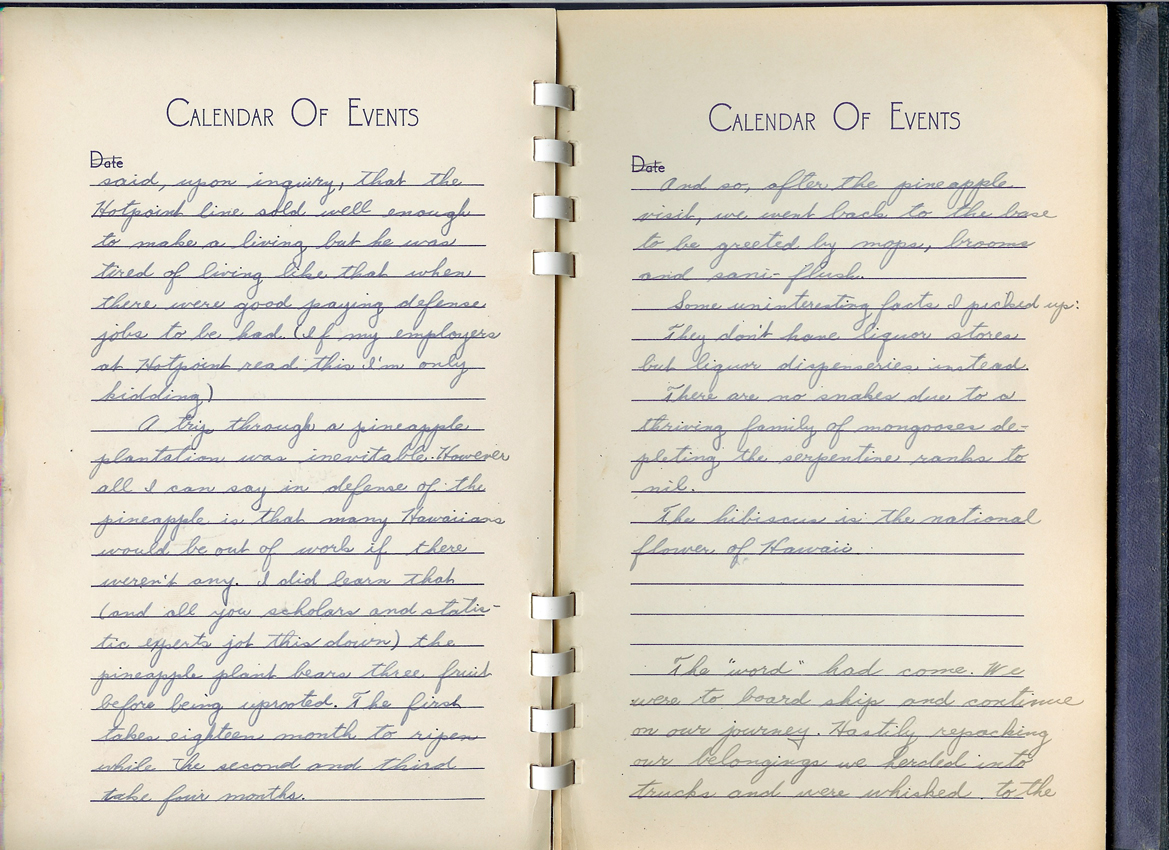 CALENDAR OF EVENTS
Date
said, upon inquiry, that the
Hotpoint line sold well enough
to make a living, but he was
tired of living like that when
there were good paying defense
jobs to be had. (If my employers
at Hotpoint read this I'm only
kidding)
A trip through a pineapple
plantation was inevitable. However
all I can say in defense of the
pineapple is that many Hawaiians
would be out of work if there
weren't any. I did learn that
(and all you scholars and statis-
tic experts jot this down) the
pineapple plant bears three fruit
before being uprooted. The first
takes eighteen month to ripen
while the second and third
take four months.
CALENDAR OF EVENTS
Date
And so, after the pineapple
visit, we went back to the base
to be greeted by mops, brooms
and sani-flush.
Some uninteresting facts I picked up:
They don't have liquor stores
but liquor dispenseries instead.
There are no snakes due to a
thriving family of mongooses de-
pleting the serpentine ranks to
nil.
The hibiscus is the national
flower of Hawaii.
The "word" had come. We
were to board ship and continue
on our journey. Hastily repacking
our belongings we herded into
trucks and were whisked to the